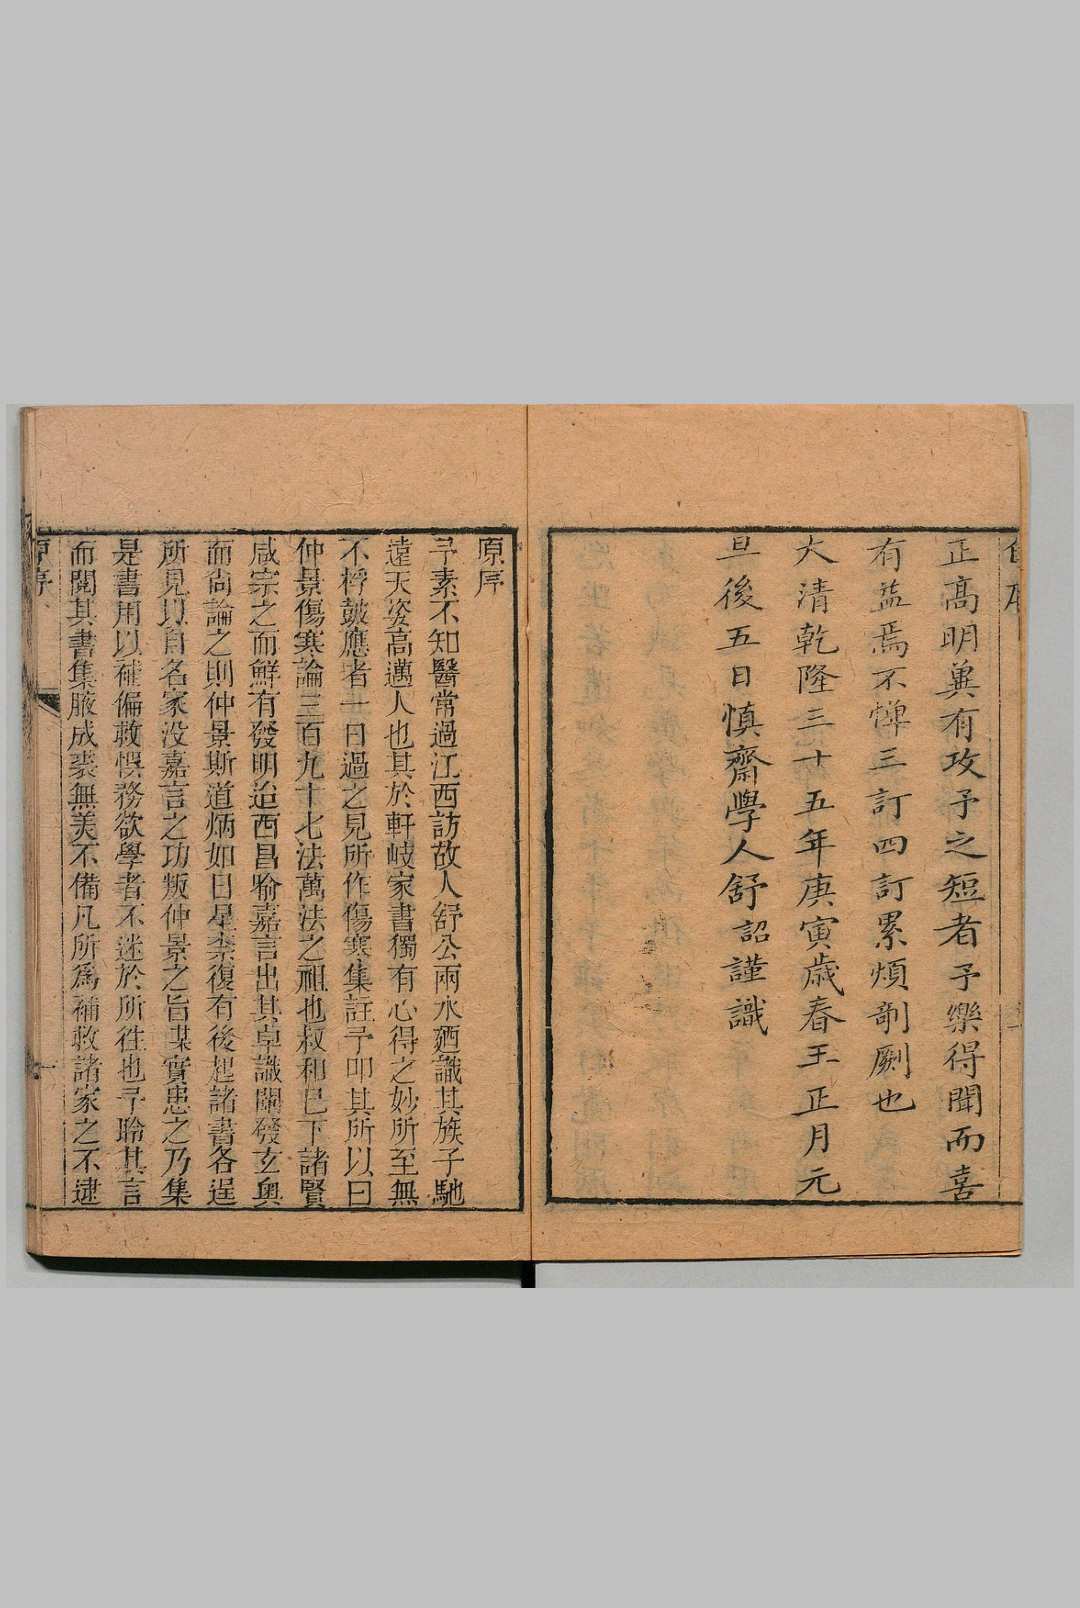 正高明冀有攻予之短者予樂得聞而喜
有益焉不憚三訂四訂累煩剞劂也
大清乾隆三十五年庚寅歲春王正月元
旦後五日慎齋學人舒詔謹識
原序
予素不知醫常過江西訪故人舒公兩水廼識其族子馳
遠天姿高邁人也其於軒岐家書獨有心得之妙所至無
不桴鼓應者一日過之見所作傷寒集註予叩其所以曰
仲景傷寒論三百九十七法萬法之祖也叔和已下諸賢
咸宗之而鮮有發明迨西昌喻嘉言出其卓識闡發玄奧
而尚論之則仲景斯道炳如日星柰復有後起諸書各逞
所見以自名家没嘉言之功叛仲景之旨謀實患之乃集
是書用以補偏救悞務欲學者不迷於所徃也予聆其言
而閱其書集腋成裘無美不備凡所爲補救諸家之不逮
原序
一